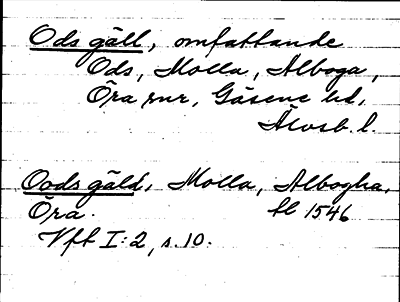 Ods gäll, omfattande
Ods, Molla, Alboga,
Öra snr, Gäsene hd,
Älvsb. l.
Oods gäld, Molla, Albogha,
Öra. tl 1546
Vft I:2, s. 10.